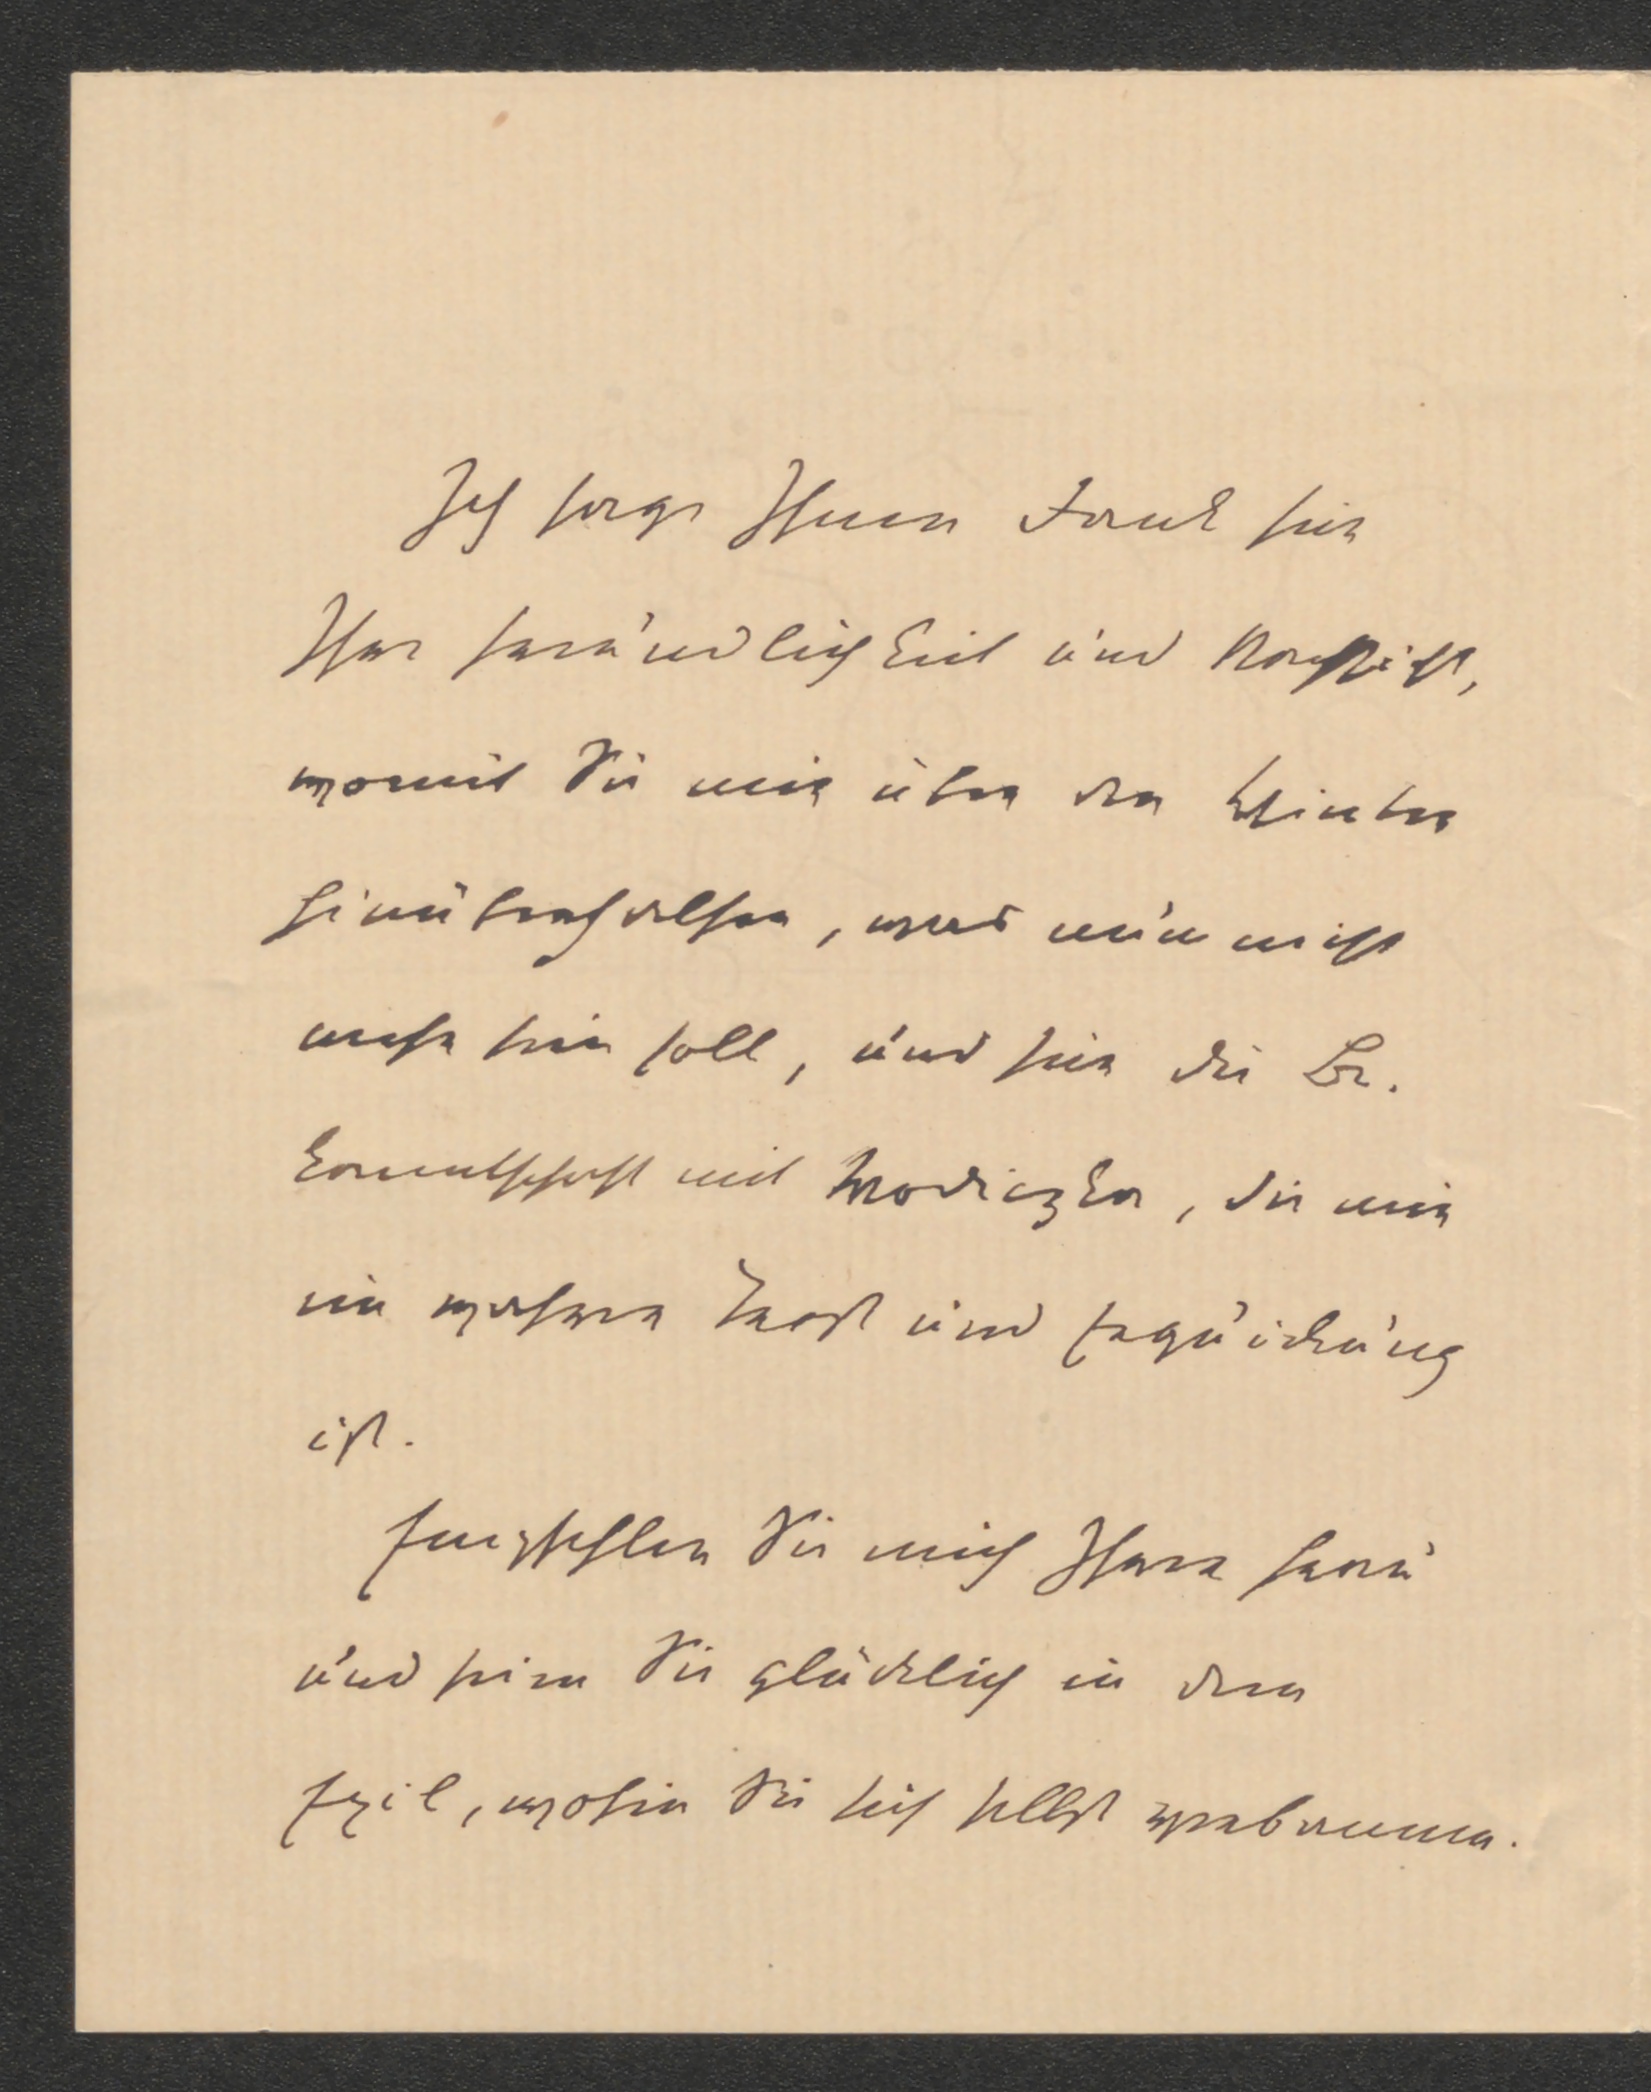 Ich sage Ihnen Dank für
Ihre Freundlichkeit und Nachsicht,
womit Sie mir über den Winter
hinüberhalfen, was nun nicht
mehr sein soll, und für die Be-
kanntschaft mit Wodiczka, die mir
ein wahrer Trost und Erquickung
ist.
Empfehlen Sie mich Ihrer Frau
und seien Sie glücklich in dem
Exil, wohin Sie sich selbst verbannen.